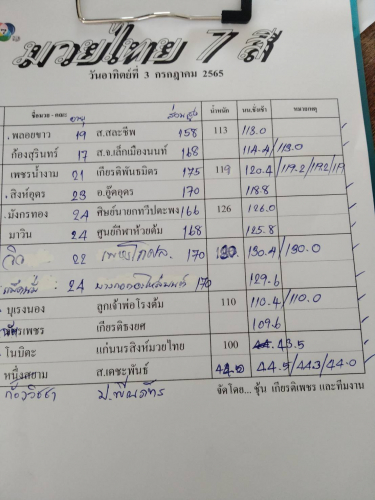 มวยไทย 7 สี
วันอาทิตย์ที่ 3 กรกฎาคม 2565
ชื่อมวย - คณะ อายุ ส่วนสูง น้ำหนัก นน.ชั่งเช้า หมายเหตุ
พลอยขาว 19 ส.สละชีพ 158 113 113.0
ก้องสุรินทร์ 17 ส.จ.เล็กเมืองนนท์ 168 114.4/113.0
เพชรน้ำงาม 21 เกียรติพันธมิตร 175 119 120.4/119.2/119.2/119
สิงห์อุดร 23 อ.อู๊ดอุดร 170 118.8
มังกรทอง 24 ศิษย์นายกทวีปตะพง 166 126 126.0
มาวิน 24 ศูนย์กีฬาห้วยต้ม 168 125.8
22 170 130. 130.4/130.0
24 170 129.6
บุเรงนอง ลูกเจ้าพ่อโรงต้ม 110 110.4/110.0
เพชร เกียรติธงยศ 109.6
โนบิตะ แก่นนรสิงห์มวยไทย 100 43.5
หนึ่งสยาม ส.เดชะพันธ์ 44.0 44.5/44.3/44.0
จัดโดย... ซุ้น เกียรติเพชร และทีมงาน